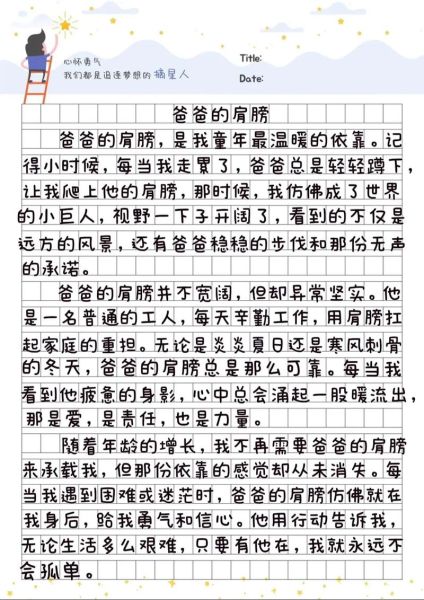 心怀勇气
我们都是追逐梦想的 摘星人
Title:
Date:
爸爸的肩膀
爸爸的肩膀，是我童年最温暖的依靠。记
得小时候，每当我走累了，爸爸总是轻轻蹲下，
让我爬上他的肩膀，那时候，我仿佛成了世界
的小巨人，视野一下子开阔了，看到的不仅是
远方的风景，还有爸爸稳稳的步伐和那份无声
的承诺。
爸爸的肩膀并不宽阔，但却异常坚实。他
是一名普通的工人，每天辛勤工作，用肩膀扛
起家庭的重担。无论是炎炎夏日还是寒风刺骨
的冬天，爸爸的肩膀总是那么可靠。每当我
看到他疲惫的身影，心中总会涌起一股暖流出，
那是爱，是责任，也是力量。
随着年龄的增长，我不再需要爸爸的肩膀
来承载我，但那份依靠的感觉却从未消失。每
当我遇到困难或迷茫时，爸爸的肩膀仿佛就在
我身后，给我勇气和信心。他用行动告诉我，
无论生活多么艰难，只要有他在，我就永远不
会孤单。